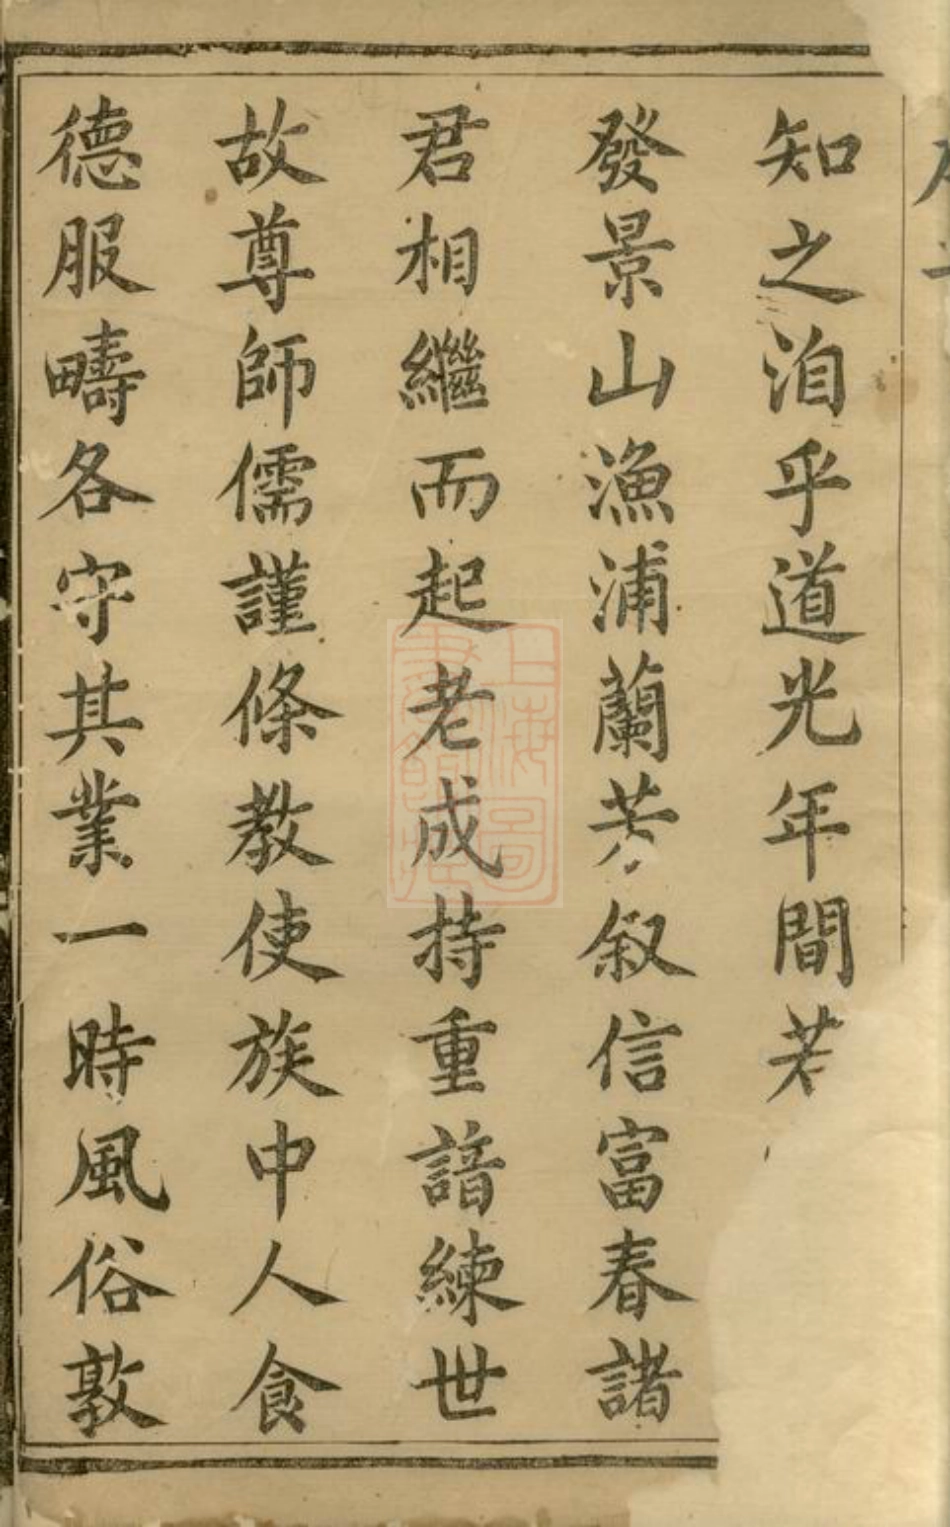 知之洎乎道光年間若
發景山漁浦蘭芳叙信富春諸
君相繼而起老成持重諳練世
故尊師儒謹條教使族中人食
德服疇各守其業一時風俗敦